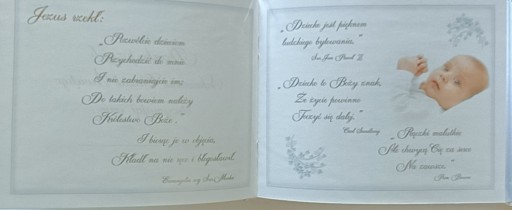 Jezus rzekł:
„Pozwólcie dzieciom
Przychodzić do mnie
I nie zabraniajcie im;
Do takich bowiem należy
Królestwo Boże."
I biorąc je w objęcia,
Kładł na nie ręce i błogosławił.
Ewangelia wg Św. Marka
„Dziecko jest pięknem
ludzkiego bytowania."
Św. Jan Paweł II
„Dziecko to Boży znak,
Że życie powinno
Toczyć się dalej."
Carl Sandburg
„Rączki malutkie
chwycą Cię za serce
Na zawsze."